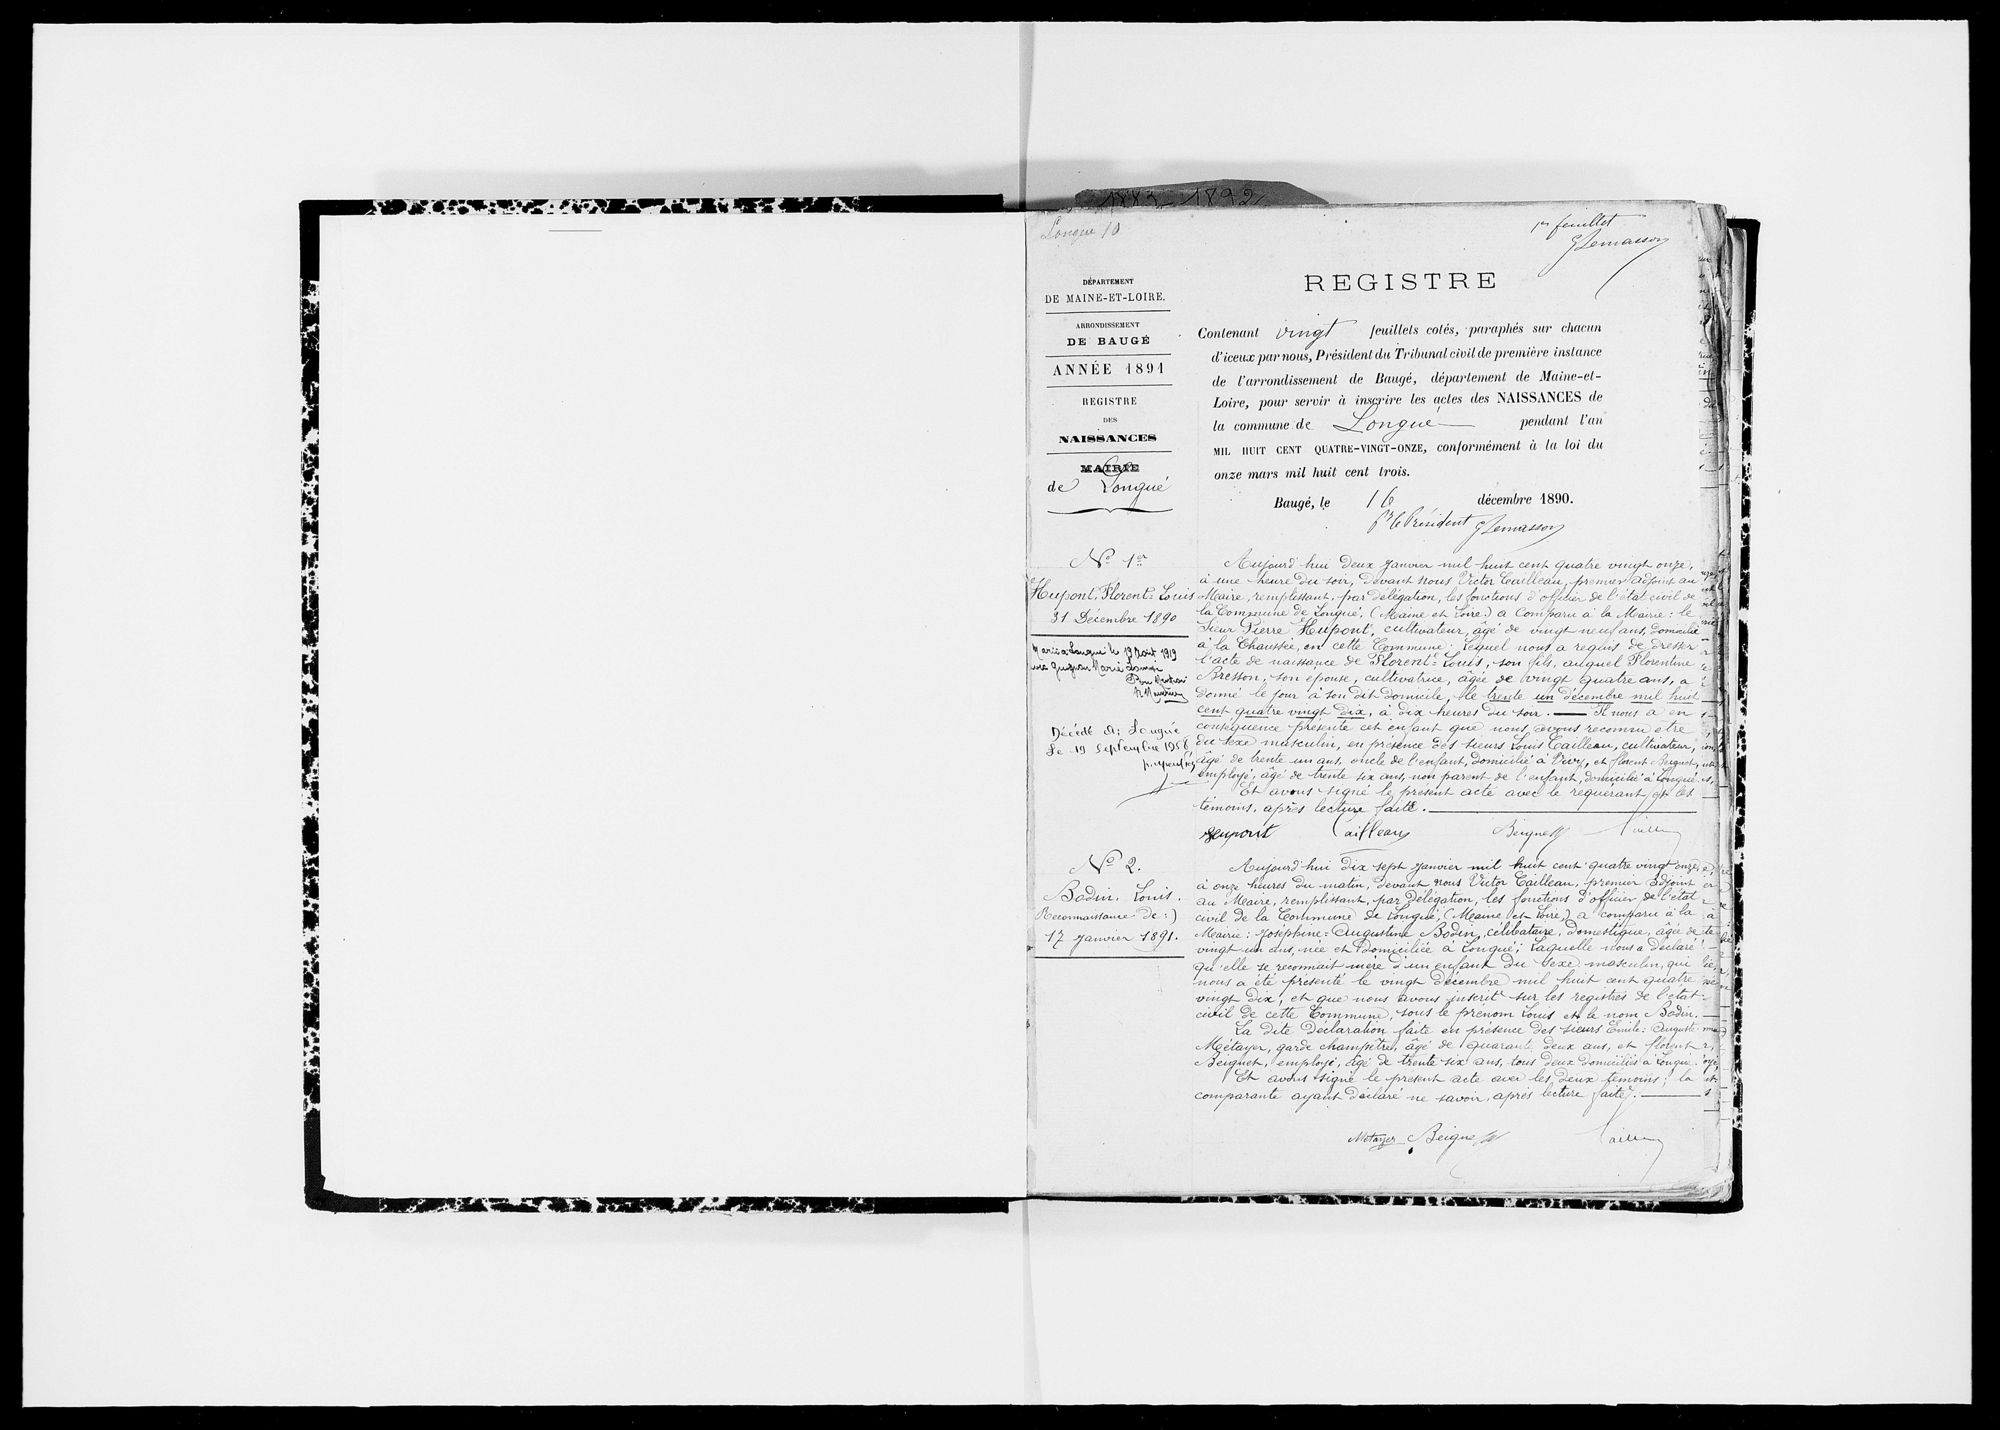 1883-1892
Longué 10
1er feuillet
GLemasson
DÉPARTEMENT
DE MAINE-ET-LOIRE.
ARRONDISSEMENT
DE BAUGÉ
ANNÉE 1891
REGISTRE
DES
NAISSANCES
MAIRIE
de Longué
REGISTRE
Contenant vingt feuillets cotés, paraphés sur chacun
d'iceux par nous, Président du Tribunal civil de première instance
de l'arrondissement de Baugé, département de Maine-et-
Loire, pour servir à inscrire les actes des NAISSANCES de
la commune de Longué pendant l'an
MIL HUIT CENT QUATRE-VINGT-ONZE, conformément à la loi du
onze mars mil huit cent trois.
Baugé, le 16 décembre 1890.
Pr le Président GLemasson
No 1er
Hupont, Florent=Louis
31 Décembre 1890
Marié à Longué le 19 Août 1919
avec Marie
Décédé à Longué
Le 19 Septembre 1958
Aujourd'hui deux Janvier mil huit cent quatre vingt onze,
à une heure du soir, devant nous Victor Cailleau, premier adjoint au
Maire, remplissant, par délégation, les fonctions d'officier de l'état civil de
la Commune de Longué, (Maine et Loire) a comparu à la Mairie : le
Sieur Pierre Hupont, cultivateur, âgé de vingt neuf ans, domicilié
à la Chaussée, en cette Commune : Lequel nous a requis de dresser
l'acte de naissance de Florent=Louis, son fils, auquel Florentine
Bresson, son épouse, cultivatrice, âgée de vingt quatre ans, a
donné le jour à son dit domicile, le trente un décembre mil huit
cent quatre vingt dix, à dix heures du soir. — Il nous a en
conséquence présenté cet enfant que nous avons reconnu être
du sexe masculin, en présence des sieurs Louis Cailleau, cultivateur,
âgé de trente un ans, oncle de l'enfant, domicilié à Vivy, et florent Beignet,
employé, âgé de trente six ans, non parent de l'enfant, domicilié à Longué.
Et avons signé le présent acte avec le requérant et les
témoins, après lecture faite.
Hupont Cailleau Beignet Cailleau
No 2.
Bodin, Louis.
(Reconnaissance de :)
17 Janvier 1891.
Aujourd'hui dix sept Janvier mil huit cent quatre vingt onze,
à onze heures du matin, devant nous Victor Cailleau, premier adjoint
au Maire, remplissant, par délégation, les fonctions d'officier de l'état
civil de la Commune de Longué, (Maine et Loire) a comparu à la
Mairie : Joséphine=Augustine Bodin, célibataire, domestique, âgée de
vingt un ans, née et domiciliée à Longué ; Laquelle nous a déclaré
qu'elle se reconnait mère d'un enfant du sexe masculin, qui
nous a été présenté le vingt décembre mil huit cent quatre
vingt dix, et que nous avons inscrit sur les registres de l'état=
civil de cette Commune, sous le prénom Louis et le nom Bodin.
La dite déclaration faite en présence des sieurs Emile=Auguste
Métayer, garde champêtre, âgé de quarante deux ans, et florent
Beignet, employé, âgé de trente six ans, tous deux domiciliés à Longué.
Et avons signé le présent acte avec les deux témoins ; la
comparante ayant déclaré ne savoir, après lecture faite.
Métayer Beignet Cailleau